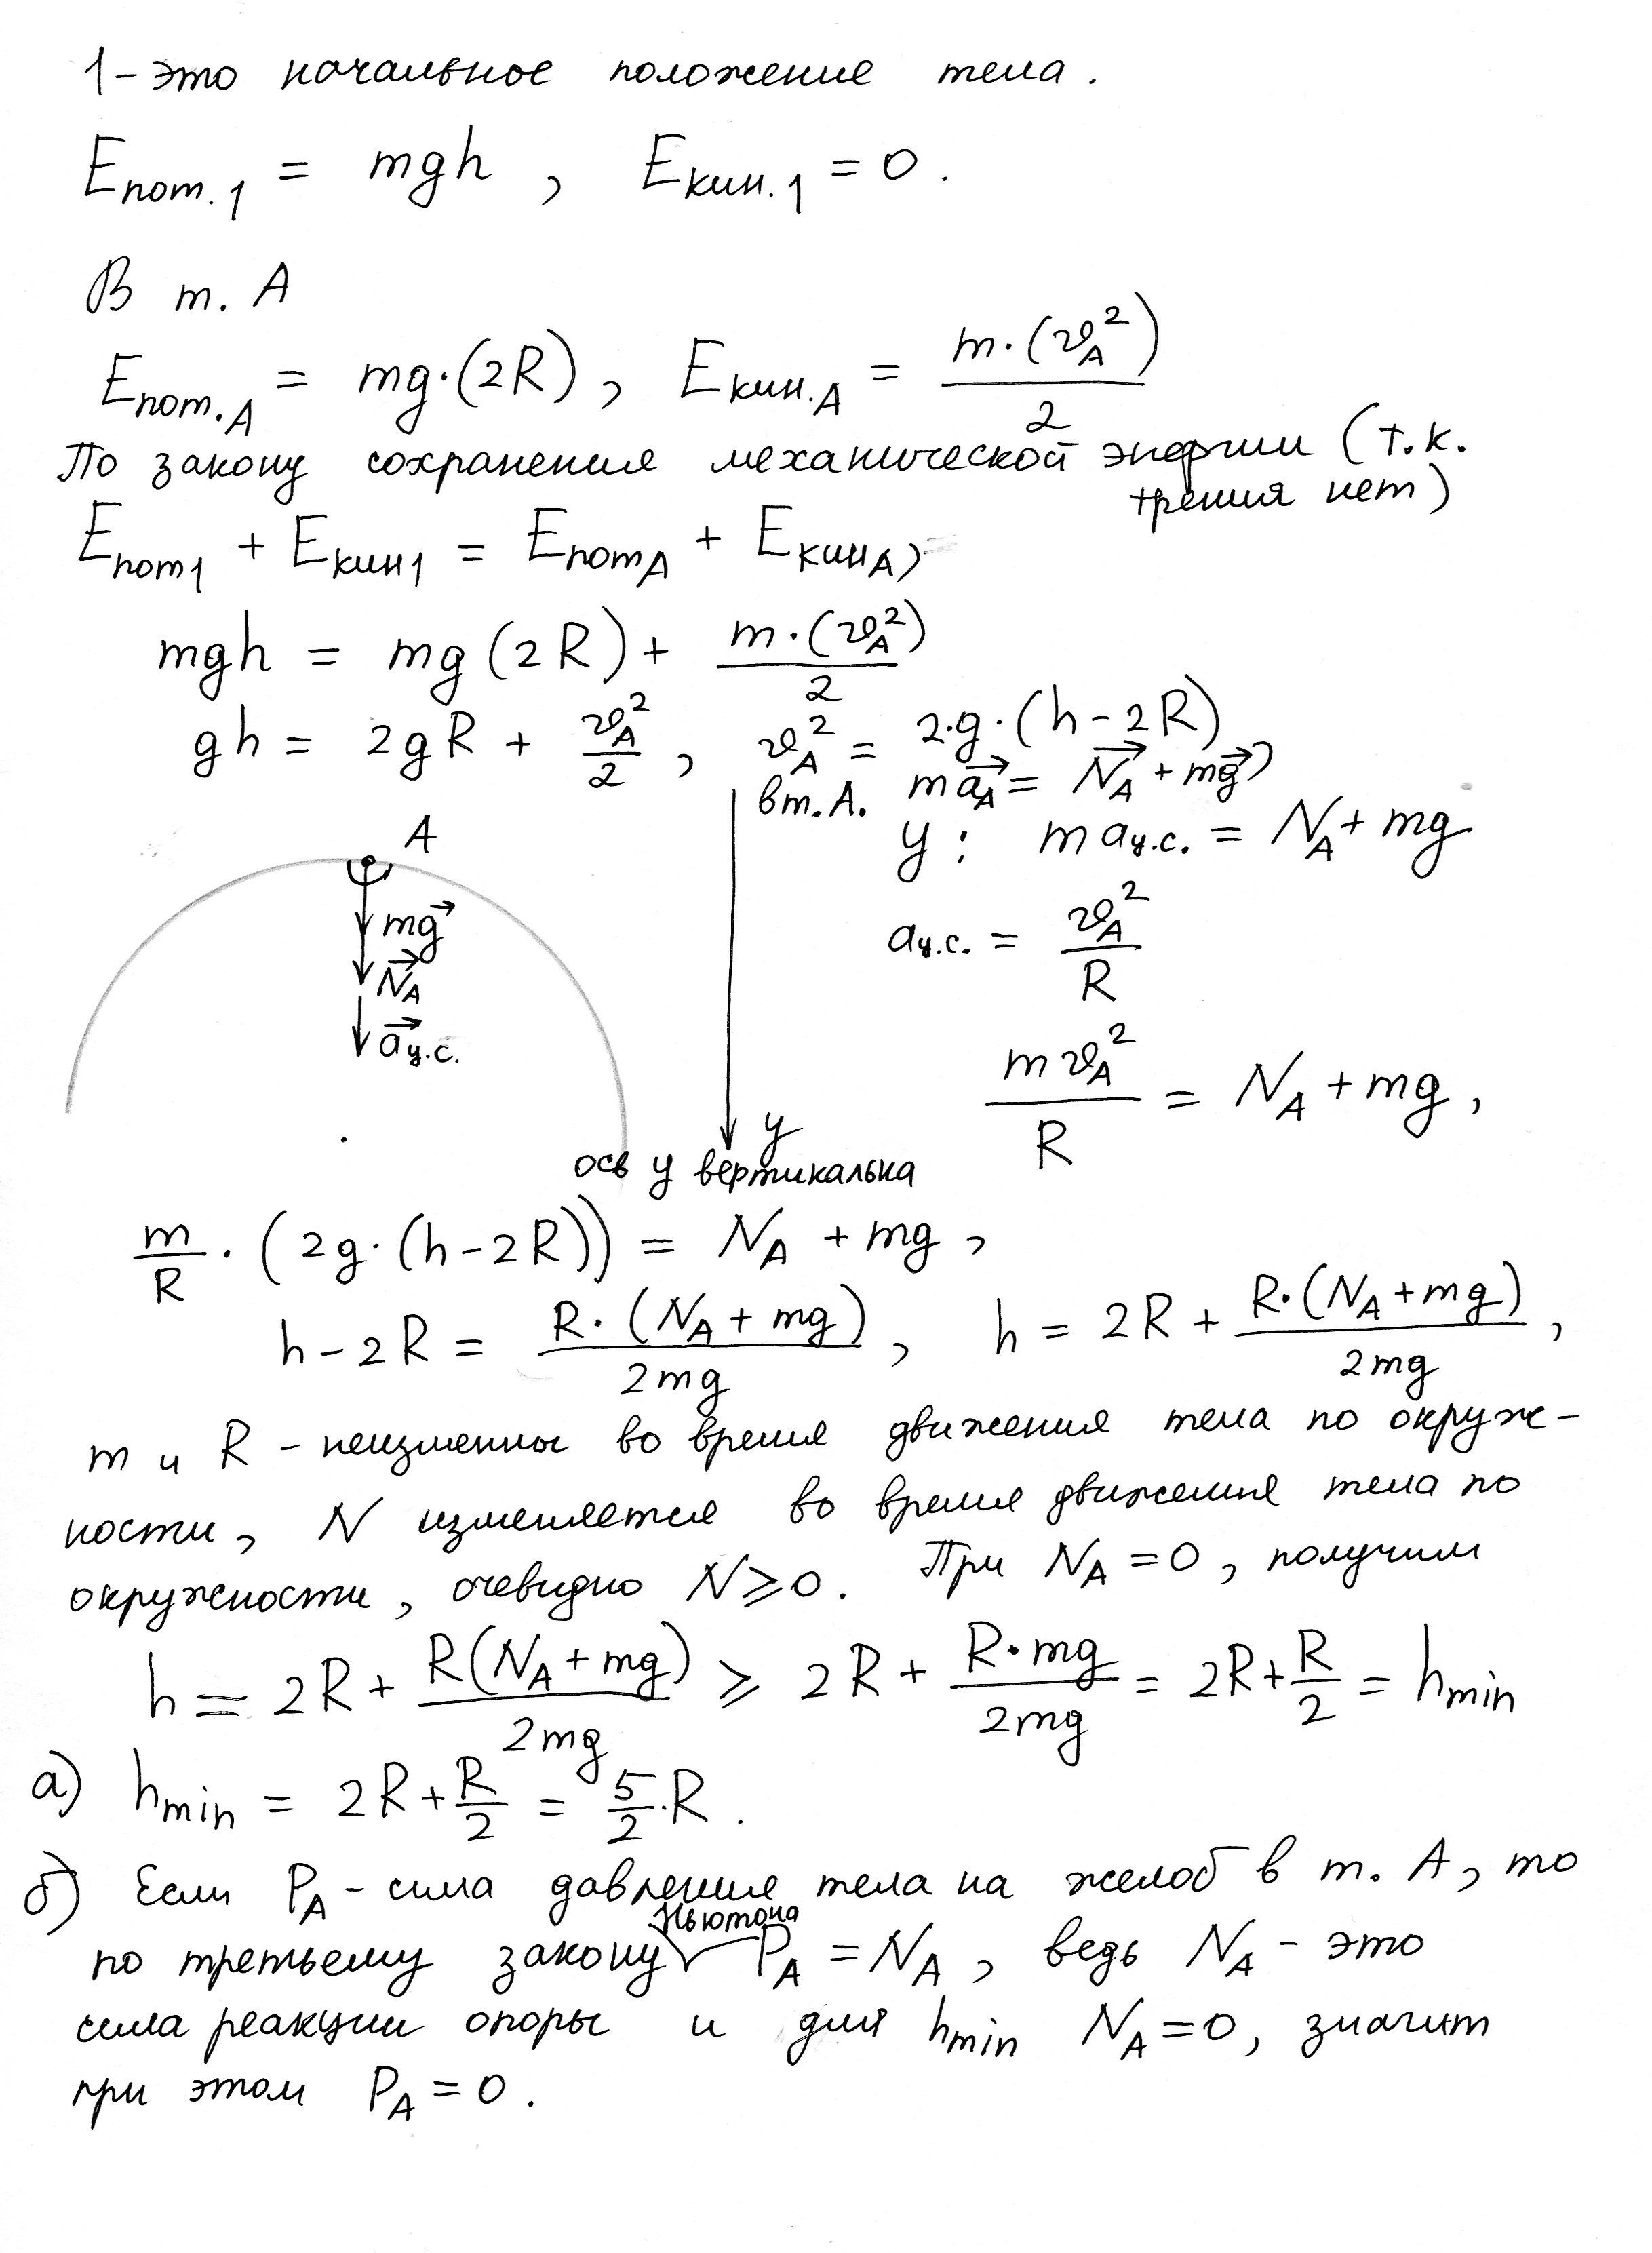 1 - это начальное положение тела.
Eпот.1 = mgh, Eкин.1 = 0.
В т. A
Eпот.A = mg·(2R), Eкин.A = m·(υA²)/2
По закону сохранения механической энергии (т.к.
трения нет)
Eпот1 + Eкин1 = EпотA + EкинA,
mgh = mg(2R) + m·(υA²)/2
gh = 2gR + υA²/2, υA² = 2·g·(h-2R)
в т. A. maA = NA + mg,
y: maц.с. = NA + mg
A
mg
NA
aц.с.
aц.с. = υA²/R
mυA²/R = NA + mg,
y
ось y вертикальна
m/R·(2g·(h-2R)) = NA + mg,
h-2R = R·(NA+mg)/2mg, h = 2R + R·(NA+mg)/2mg,
m и R - неизменны во время движения тела по окруж-
ности, N изменяется во время движения тела по
окружности, очевидно N≥0. При NA=0, получим
h = 2R + R(NA+mg)/2mg ≥ 2R + R·mg/2mg = 2R + R/2 = hmin
а) hmin = 2R + R/2 = 5/2·R.
б) Если PA - сила давления тела на желоб в т. A, то
по третьему закону Ньютона PA = NA, ведь NA - это
сила реакции опоры и для hmin NA=0, значит
при этом PA = 0.